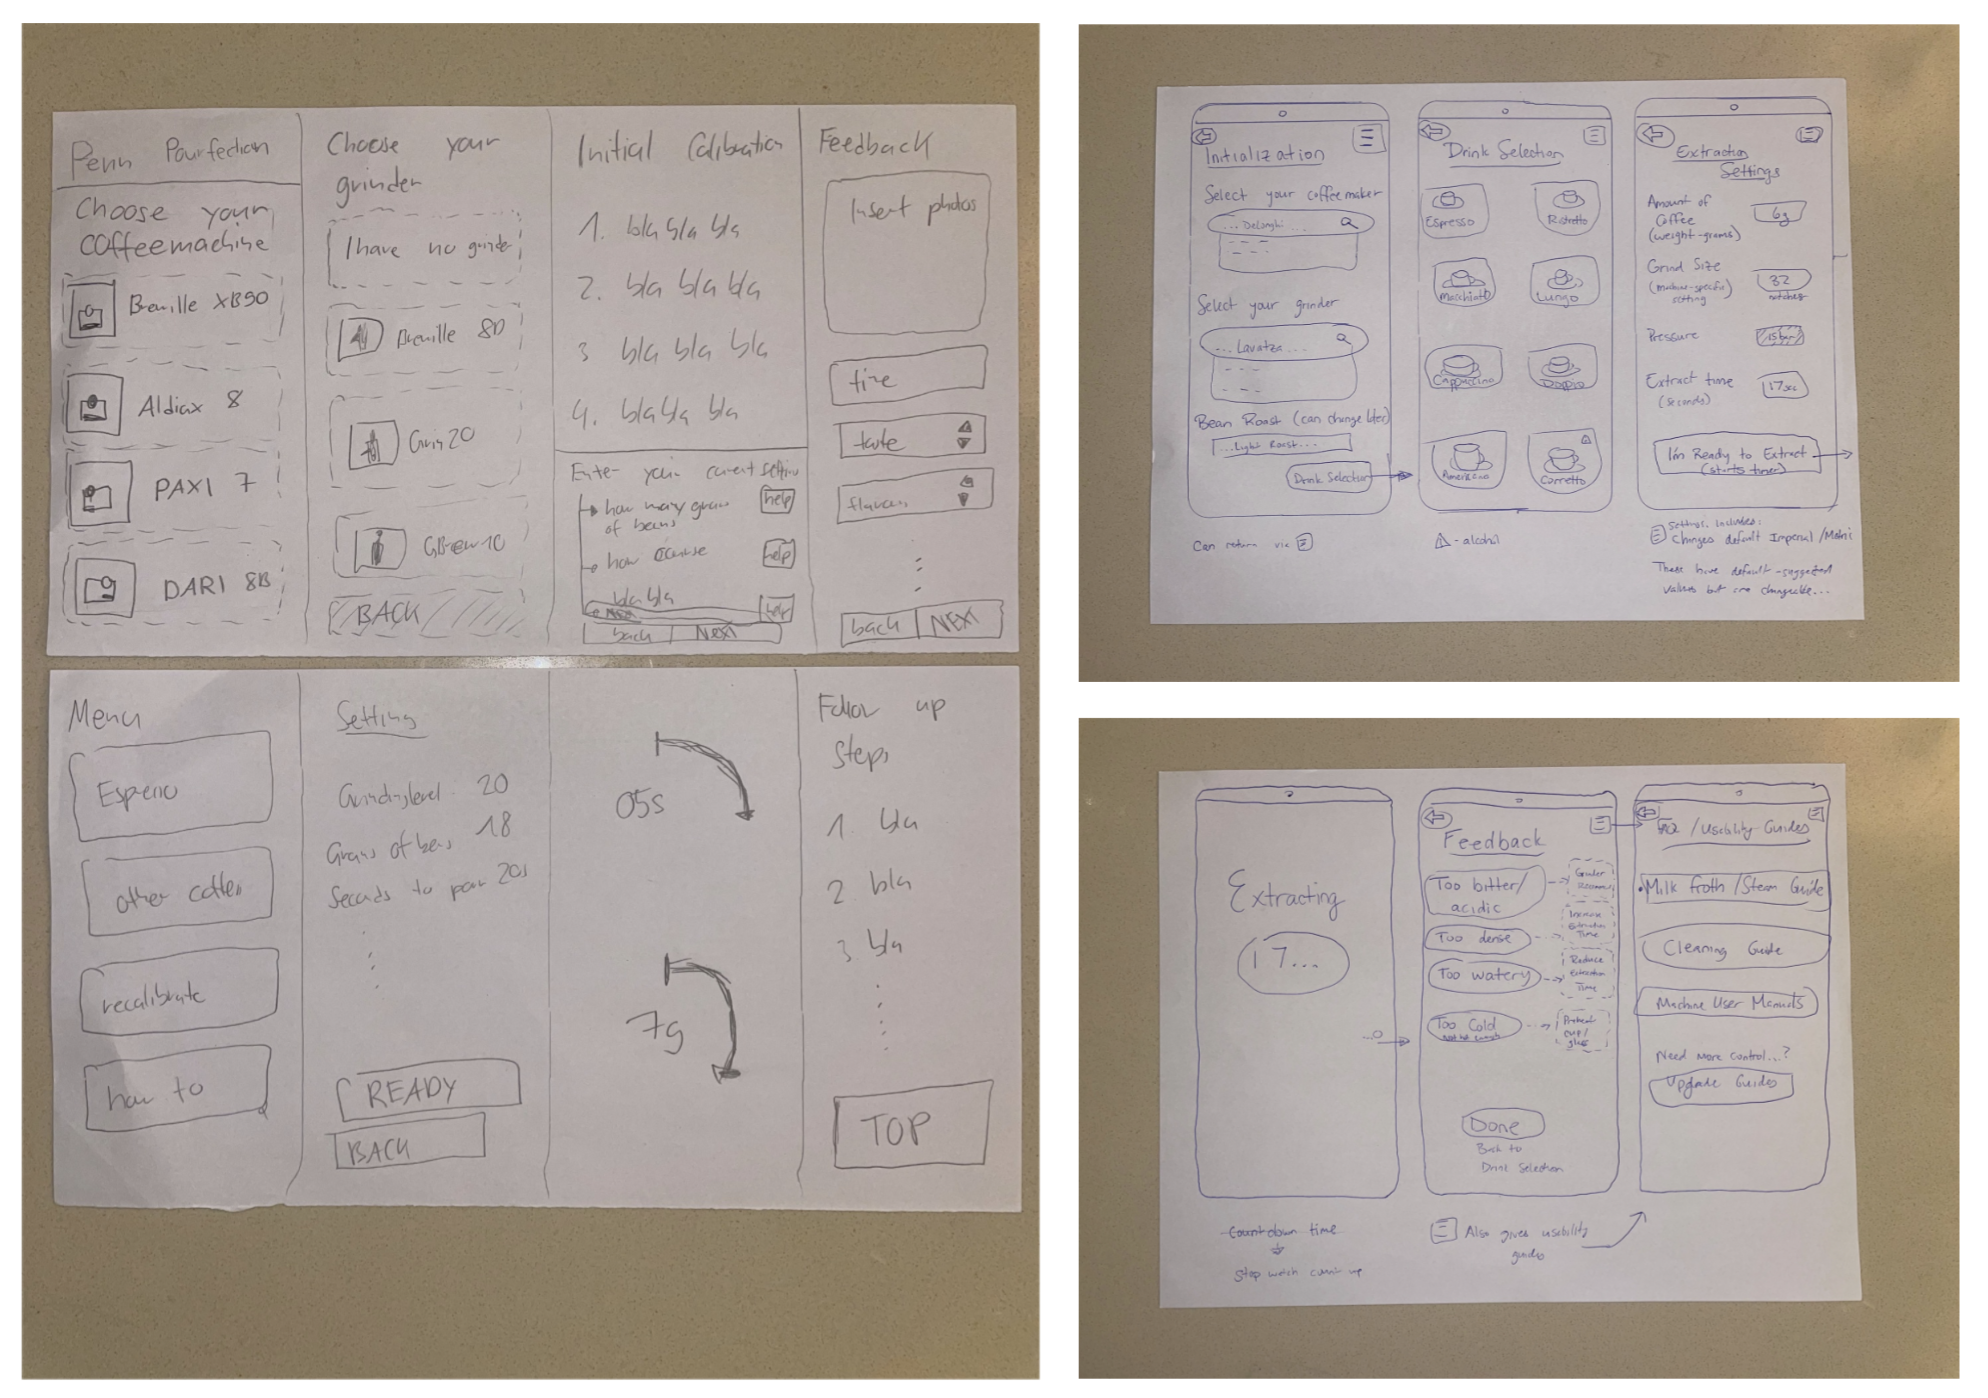 Penn Pourfection
Choose your
coffeemachine
Breville XB90
Aldiax 8
PAXI 7
DARI 8B
Choose your
grinder
I have no grinder
Breville 80
20
10
BACK
Initial Calibration
1. bla bla bla
2. bla bla bla
3 bla bla bla
4. bla bla bla
Enter your current
how many grams
of beans
help
how coarse
help
bla bla
help
back
Next
Feedback
Insert photos
time
taste
back
NEXT
Menu
Espresso
other coffees
recalibrate
how to
Setting
Grinding level 20
Grams of beans 18
Seconds to pour 20s
READY
BACK
05s
7g
Follow up
steps
1. bla
2 bla
3 bla
TOP
Initialization
Select your coffee maker
... Delonghi ...
Select your grinder
... Lavatza ...
Bean Roast (can change later)
...Light Roast...
Drink Selection
Can return via
Drink Selection
Espresso
Ristretto
Macchiato
Lungo
Cappuccino
Doppio
Americano
Corretto
- alcohol
Extraction
Settings
Amount of
Coffee
(weight-grams)
6g
Grind Size
(machine-specific
setting
32
notches
Pressure
15 bar
Extract time
(seconds)
17sec
I'm Ready to Extract
(starts timer)
Settings includes:
Changes default Imperial/Metric
These have default-suggested
values but are changeable...
Extracting
17...
Countdown time
Stop watch
Feedback
Too bitter/
acidic
Too dense
Increase
Extraction
Time
Too watery
Reduce
Extraction
Time
Too Cold
Preheat
cup/
glass
Done
Back to
Drink Selection
Also gives usability
guides
/Usability Guides
Milk Froth/Steam Guide
Cleaning Guide
Machine User Manuals
Need More control...?
Upgrade Guides